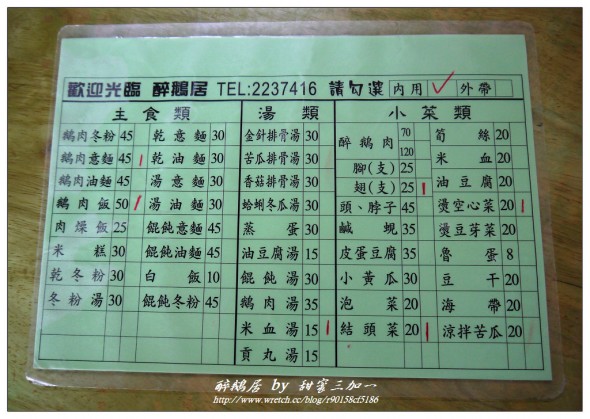 歡迎光臨 醉鵝居 TEL:2237416 請勾選 內用 外帶
主食類 湯類 小菜類
鵝肉冬粉 45
鵝肉意麵 45
鵝肉油麵 45
鵝肉飯 50
肉燥飯 25
米糕 30
乾冬粉 30
冬粉湯 30
乾意麵 30
乾油麵 30
湯意麵 30
湯油麵 30
餛飩意麵 45
餛飩油麵 45
白飯 10
餛飩冬粉 45
金針排骨湯 30
苦瓜排骨湯 30
香菇排骨湯 30
蛤蜊冬瓜湯 30
蒸蛋 30
油豆腐湯 15
餛飩湯 30
鵝肉湯 35
米血湯 15
貢丸湯 15
醉鵝肉 70 120
腳(支) 25
翅(支) 25
頭、脖子 45
鹹蜆 35
皮蛋豆腐 35
小黃瓜 30
泡菜 20
結頭菜 20
筍絲 20
米血 20
油豆腐 20
燙空心菜 20
燙豆芽菜 20
魯蛋 8
豆干 20
海帶 20
涼拌苦瓜 20
醉鵝居 by 甜蜜三加一
http://www.wretch.cc/blog/r90158cf5186